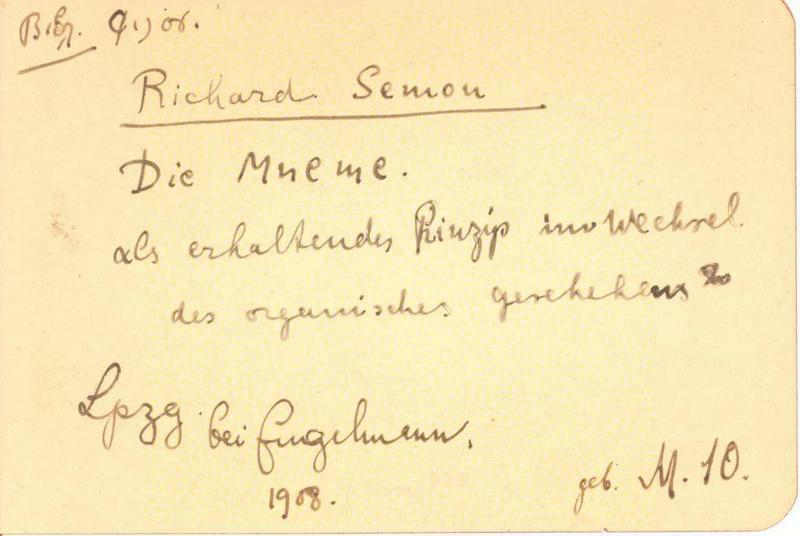 Richard Semon
Die Mneme.
als erhaltendes Prinzip im Wechsel
des organischen geschehens
Lpzg. bei Engelmann.
1908.
geb. M. 10.